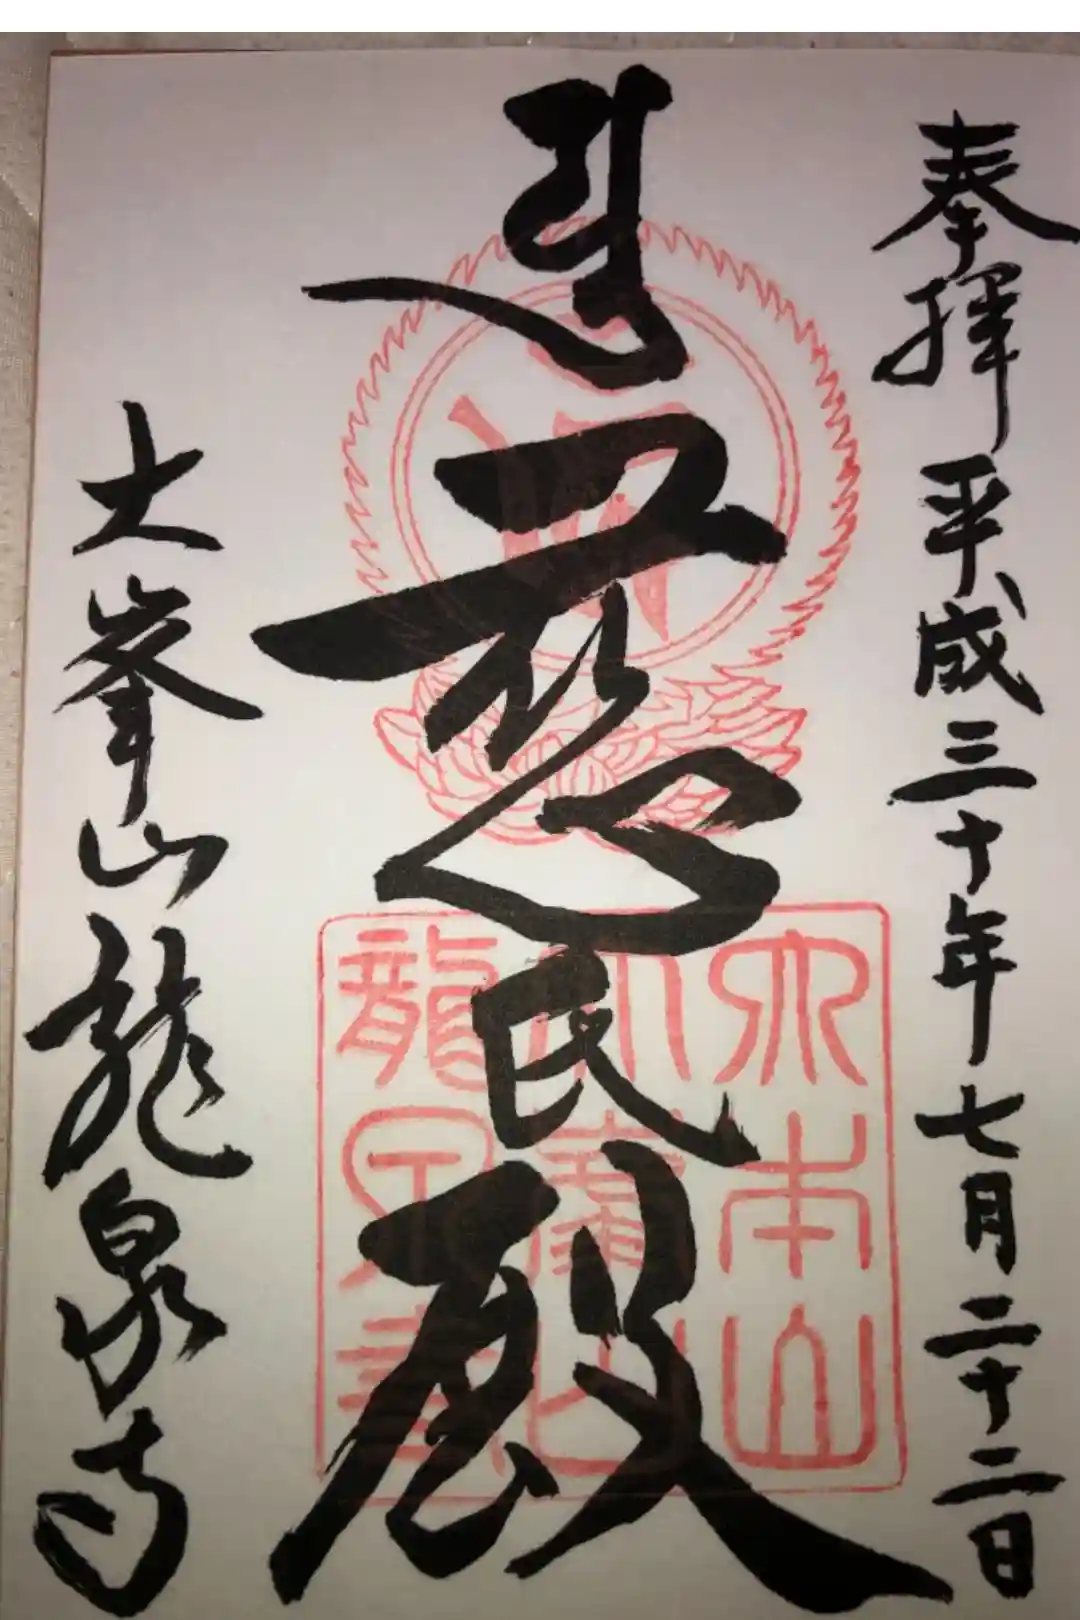 奉拝 平成三十年七月二十二日
慈氏殿
大本山
大峯山
龍泉寺
大峯山龍泉寺